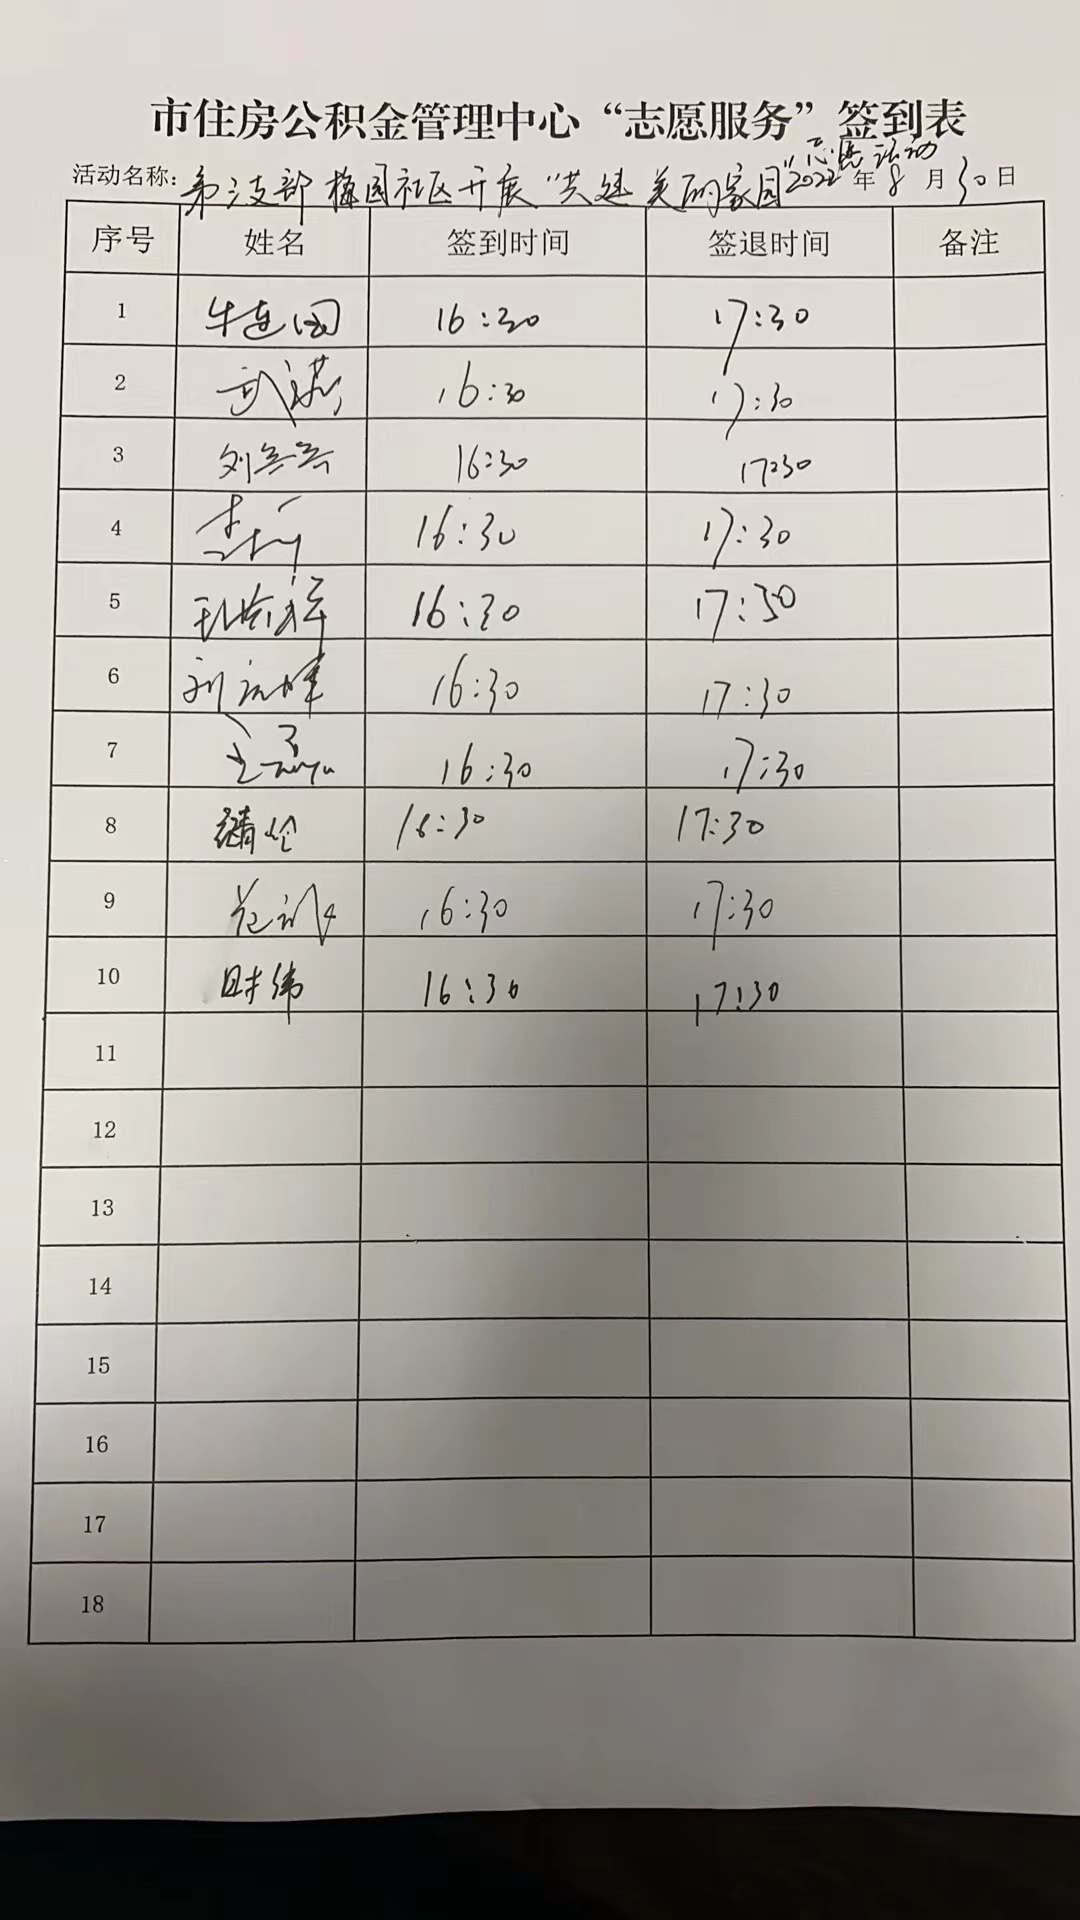 市住房公积金管理中心“志愿服务”签到表
志愿活动
活动名称: 第三支部梅园社区开展“共建美丽家园” 2022年8月30日
序号 姓名 签到时间 签退时间 备注
1 牛连国 16:30 17:30
2 武 16:30 17:30
3 刘 16:30 17:30
4 16:30 17:30
5 16:30 17:30
6 16:30 17:30
7 16:30 17:30
8 16:30 17:30
9 16:30 17:30
10 16:30 17:30
11
12
13
14
15
16
17
18